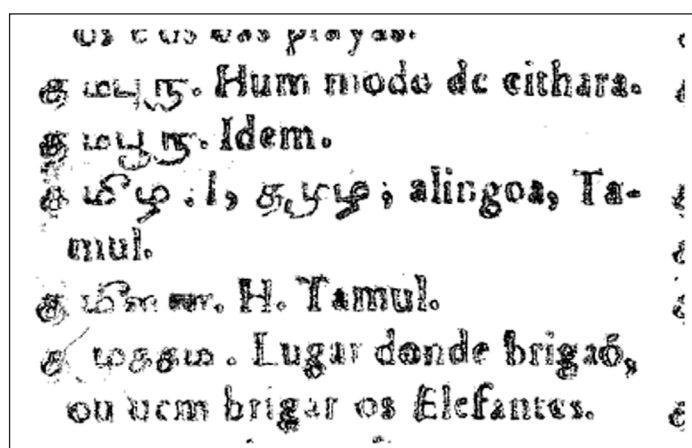 தமபுரு. Hum modo de cithara.
தமபூரு. Idem.
தமிழ. l, தமுழ; alingoa, Ta-
mul.
தமிளன. H. Tamul.
தமத்தம. Lugar donde brigaõ,
ou uem brigar os Elefantes.